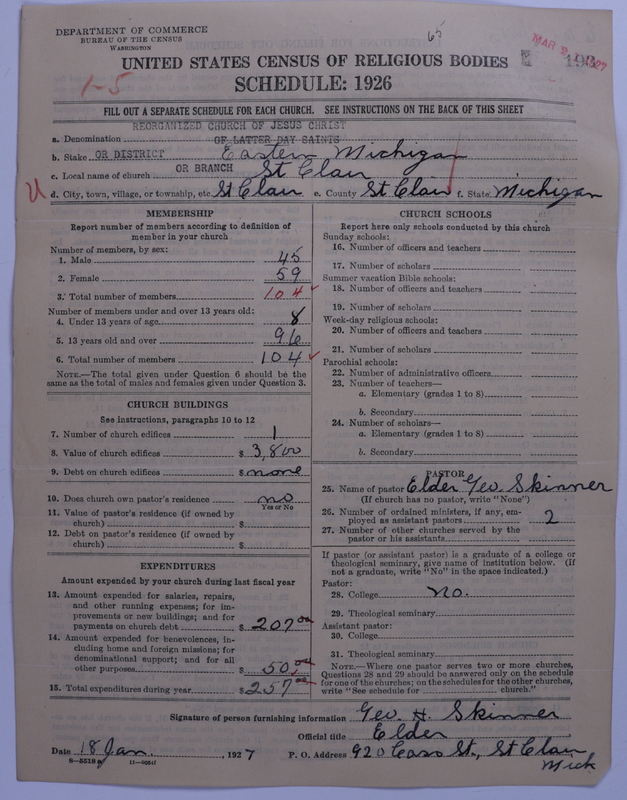 65
DEPARTMENT OF COMMERCE
BUREAU OF THE CENSUS
WASHINGTON
UNITED STATES CENSUS OF RELIGIOUS BODIES
SCHEDULE: 1926
1-5
FILL OUT A SEPARATE SCHEDULE FOR EACH CHURCH. SEE INSTRUCTIONS ON THE BACK OF THIS SHEET
REORGANIZED CHURCH OF JESUS CHRIST
a. Denomination OF LATTER DAY SAINTS
b. Stake OR DISTRICT Eastern Michigan
c. Local name of church OR BRANCH St Clair
d. City, town, village, or township, etc. St Clair e. County St Clair f. State Michigan
MEMBERSHIP
Report number of members according to definition of
member in your church
Number of members, by sex:
1. Male 45
2. Female 59
3. Total number of members 104
Number of members under and over 13 years old:
4. Under 13 years of age 8
5. 13 years old and over 96
6. Total number of members 104
NOTE.—The total given under Question 6 should be the
same as the total of males and females given under Question 3.
CHURCH BUILDINGS
See instructions, paragraphs 10 to 12
7. Number of church edifices 1
8. Value of church edifices $ 3,800
9. Debt on church edifices $ none
10. Does church own pastor's residence no
Yes or No
11. Value of pastor's residence (if owned by
church) $
12. Debt on pastor's residence (if owned by
church) $
EXPENDITURES
Amount expended by your church during last fiscal year
13. Amount expended for salaries, repairs,
and other running expenses; for im-
provements or new buildings; and for
payments on church debt $ 207 00
14. Amount expended for benevolences, in-
cluding home and foreign missions; for
denominational support; and for all
other purposes $ 50 00
15. Total expenditures during year $ 257 00
CHURCH SCHOOLS
Report here only schools conducted by this church
Sunday schools:
16. Number of officers and teachers
17. Number of scholars
Summer vacation Bible schools:
18. Number of officers and teachers
19. Number of scholars
Week-day religious schools:
20. Number of officers and teachers
21. Number of scholars
Parochial schools:
22. Number of administrative officers
23. Number of teachers—
a. Elementary (grades 1 to 8)
b. Secondary
24. Number of scholars—
a. Elementary (grades 1 to 8)
b. Secondary
PASTOR
25. Name of pastor Elder Geo Skinner
(If church has no pastor, write "None")
26. Number of ordained ministers, if any, em-
ployed as assistant pastors 2
27. Number of other churches served by the
pastor or his assistants
If pastor (or assistant pastor) is a graduate of a college or
theological seminary, give name of institution below. (If
not a graduate, write "No" in the space indicated.)
Pastor:
28. College No.
29. Theological seminary
Assistant pastor:
30. College
31. Theological seminary
NOTE.—Where one pastor serves two or more churches,
Questions 28 and 29 should be answered only on the schedule
for one of the churches; on the schedules for the other churches,
write "See schedule for church."
Signature of person furnishing information Geo. H. Skinner
Official title Elder
Date 18 Jan. , 1927 P. O. Address 920 Cass St., St Clair
Mich